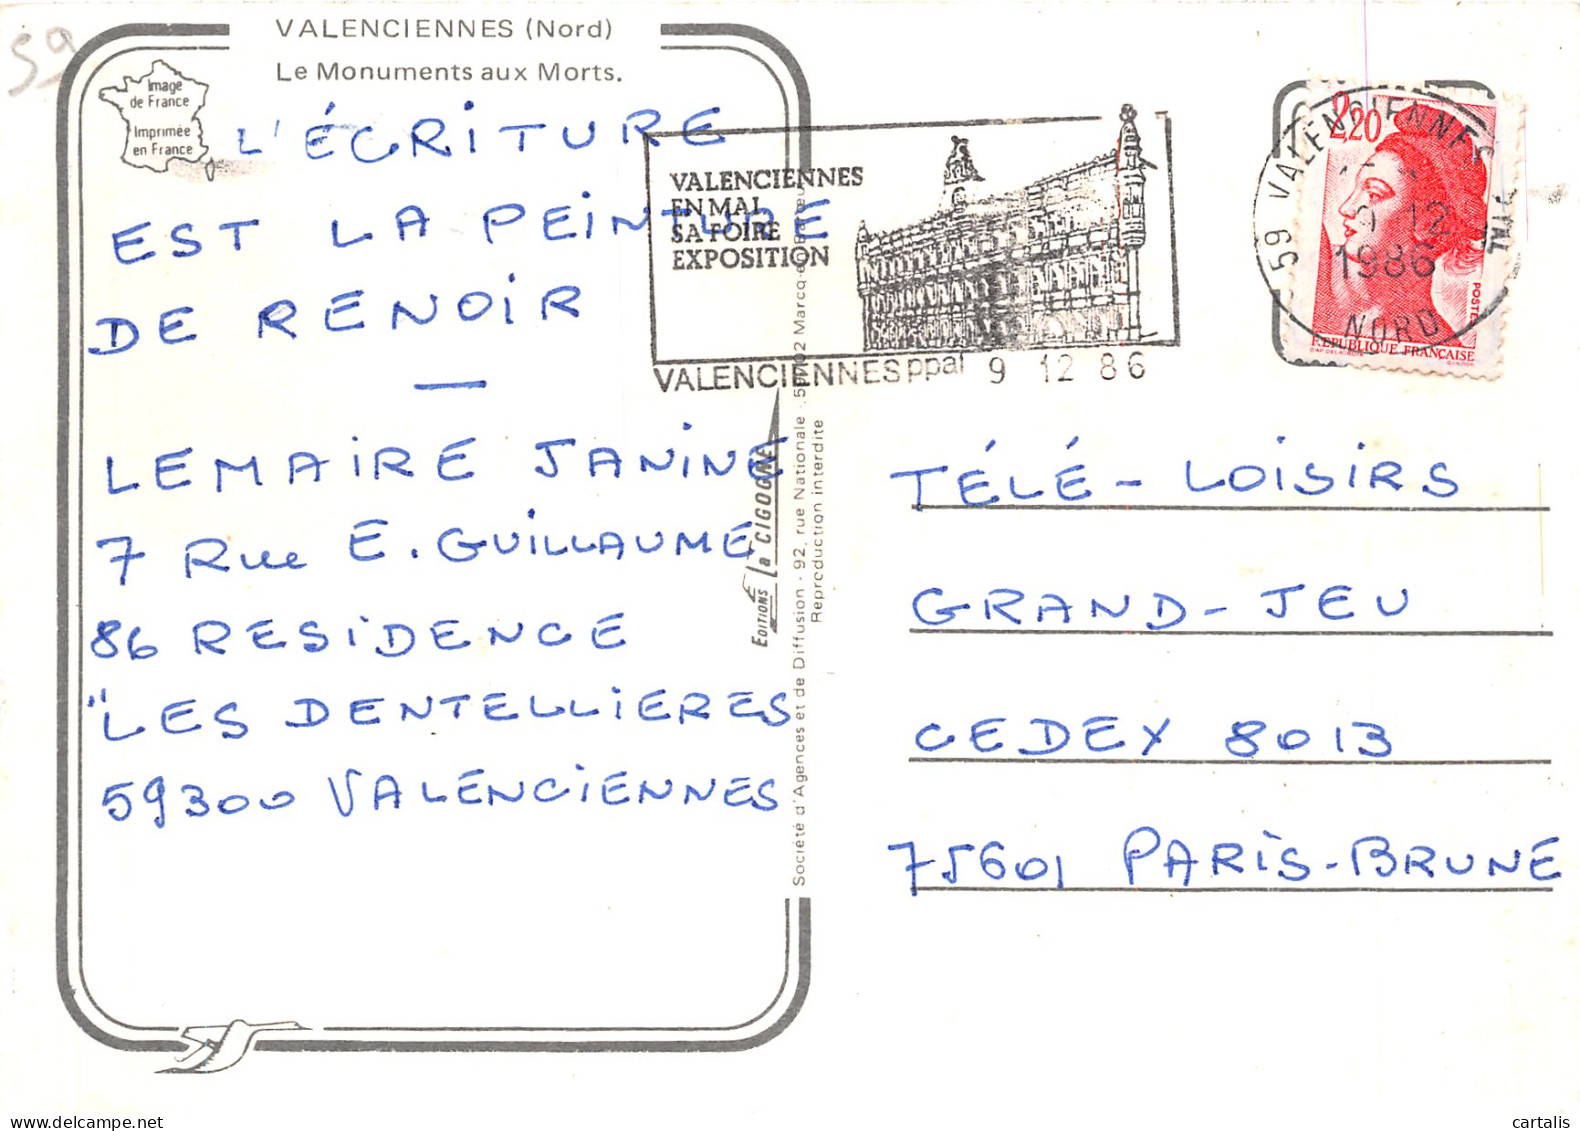 59
VALENCIENNES (Nord)
Le Monuments aux Morts.
Image
de France
Imprimée
en France
L'ÉCRITURE
EST LA PEINTURE
DE RENOIR
—
LEMAIRE JANINE
7 Rue E. GUILLAUME
86 RESIDENCE
"LES DENTELLIERES
59300 VALENCIENNES
VALENCIENNES
EN MAI
SA FOIRE
EXPOSITION
VALENCIENNES ppal 9 12 86
59 VALENCIENNES
9 12
1986
NORD
2,20
POSTES
REPUBLIQUE FRANÇAISE
EDITIONS La CIGOGNE
Société d'Agences et de Diffusion - 92, rue Nationale
Reproduction interdite
TÉLÉ-LOISIRS
GRAND-JEU
CEDEX 8013
75601 PARIS-BRUNE
cartalis